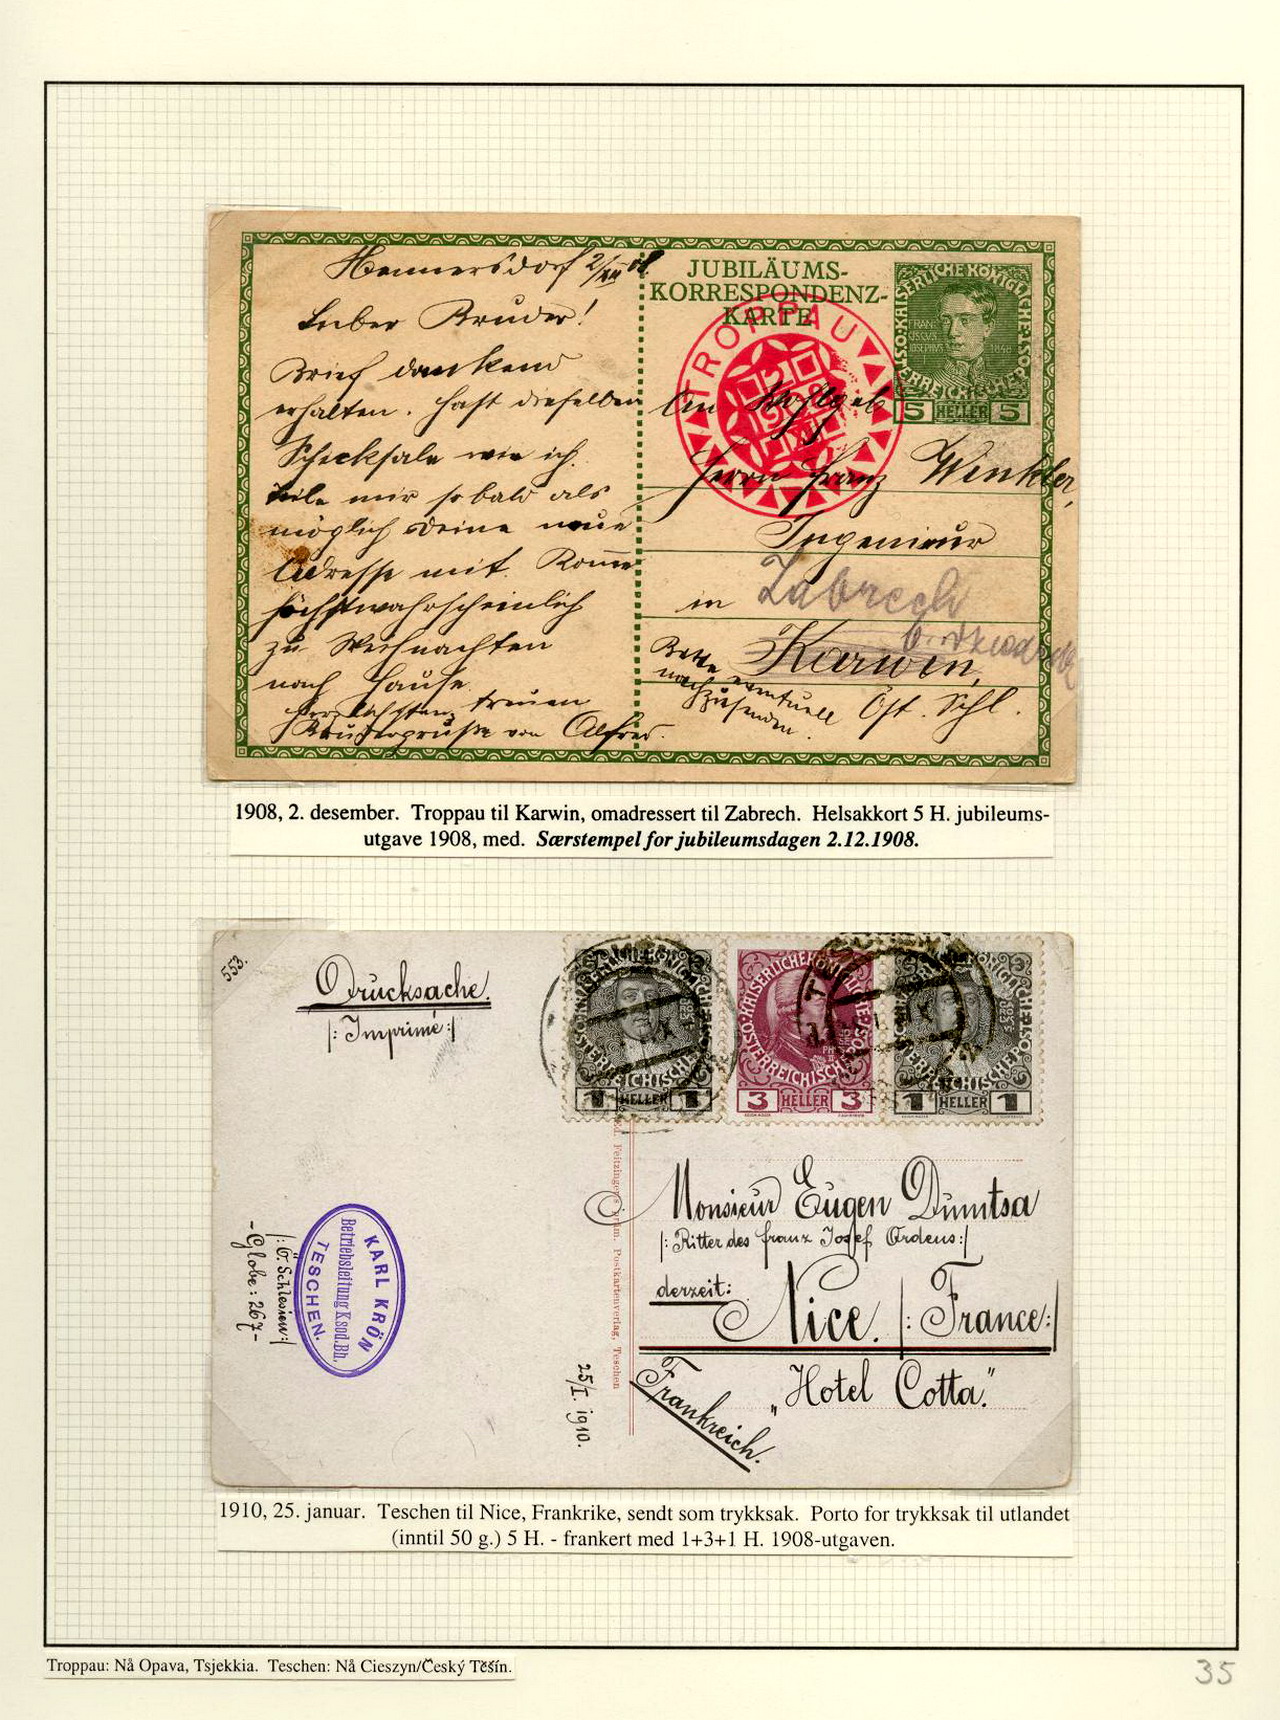 Hennersdorf 2/XII 08.
Lieber Bruder!
Brief dankend
erhalten. Hast dieselben
Schicksale wie ich.
Teile mir sobald als
möglich Deine neue
Adresse mit. Komme
höchstwahrscheinlich
zu Weihnachten
nach Hause.
Herzlichsten, treuen
Brudergrüße von Alfred.
JUBILÄUMS-
KORRESPONDENZ-
KARTE
TROPPAU
KAISERLICHE KÖNIGLICHE
5 HELLER 5
An Wohlgeb
Herrn Franz Winkler,
Ingenieur
in Zabrzeh
Karwin,
Bitte eventuell
nachzusenden.
Öst. Schl.
1908, 2. desember. Troppau til Karwin, omadressert til Zabrech. Helsakkort 5 H. jubileums-
utgave 1908, med. Særstempel for jubileumsdagen 2.12.1908.
553.
Drucksache.
|: Imprimé :|
1 HELLER 1
3 HELLER 3
1 HELLER 1
Monsieur Eugen
|: Ritter des Franz Josef Ordens :|
derzeit:
Nice. |: France :|
"Hotel Cotta."
Frankreich.
Postkartenverlag, Teschen
25/I. 1910.
KARL KRÖN
Betriebsleitung Ksod.Bh.
TESCHEN.
|: Ö. Schlesien :|
- Globe: 267 -
1910, 25. januar. Teschen til Nice, Frankrike, sendt som trykksak. Porto for trykksak til utlandet
(inntil 50 g.) 5 H. - frankert med 1+3+1 H. 1908-utgaven.
Troppau: Nå Opava, Tsjekkia. Teschen: Nå Cieszyn/Český Těšín.
35